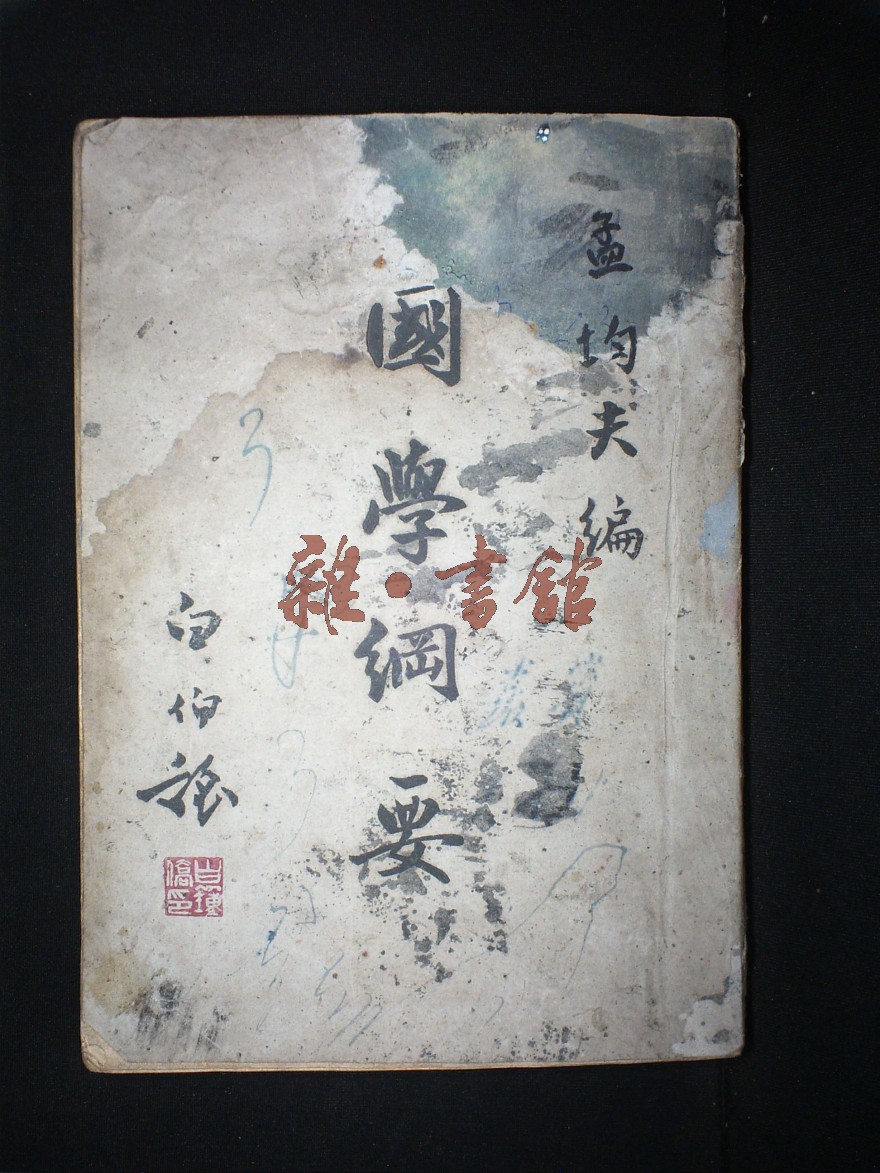 孟均夫編
國學綱要
白伯
雜·書舘